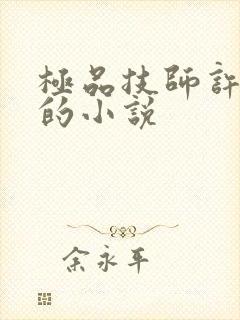 極品技師許
的小説
余永平